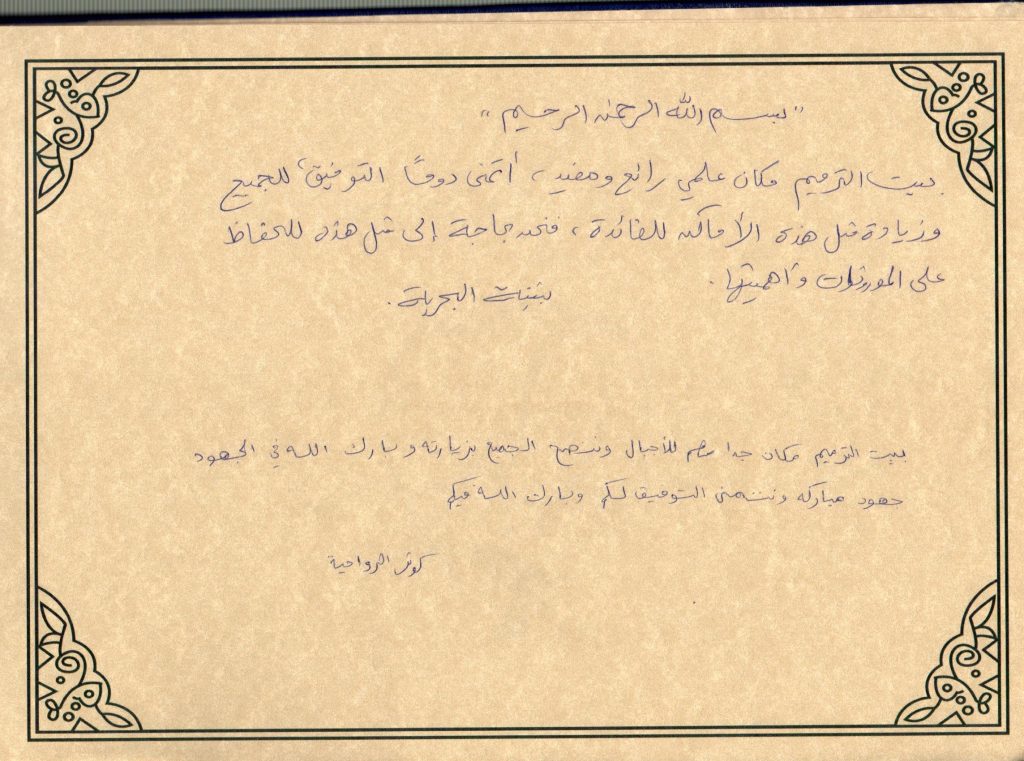 "بسم الله الرحمن الرحيم"
بيت الترميم مكان علمي رائع ومفيد، أتمنى دومًا التوفيق للجميع
وزيادة مثل هذه الأماكن للفائدة، فنحن بحاجة إلى مثل هذه للحفاظ
على الموروثات وأهميتها.
بثينة البحرية.
بيت الترميم مكان جدا مهم للأجيال وننصح الجميع بزيارته وبارك الله في الجهود
جهود مباركه ونتمنى التوفيق لكم وبارك الله فيكم
كوثر الرواحية